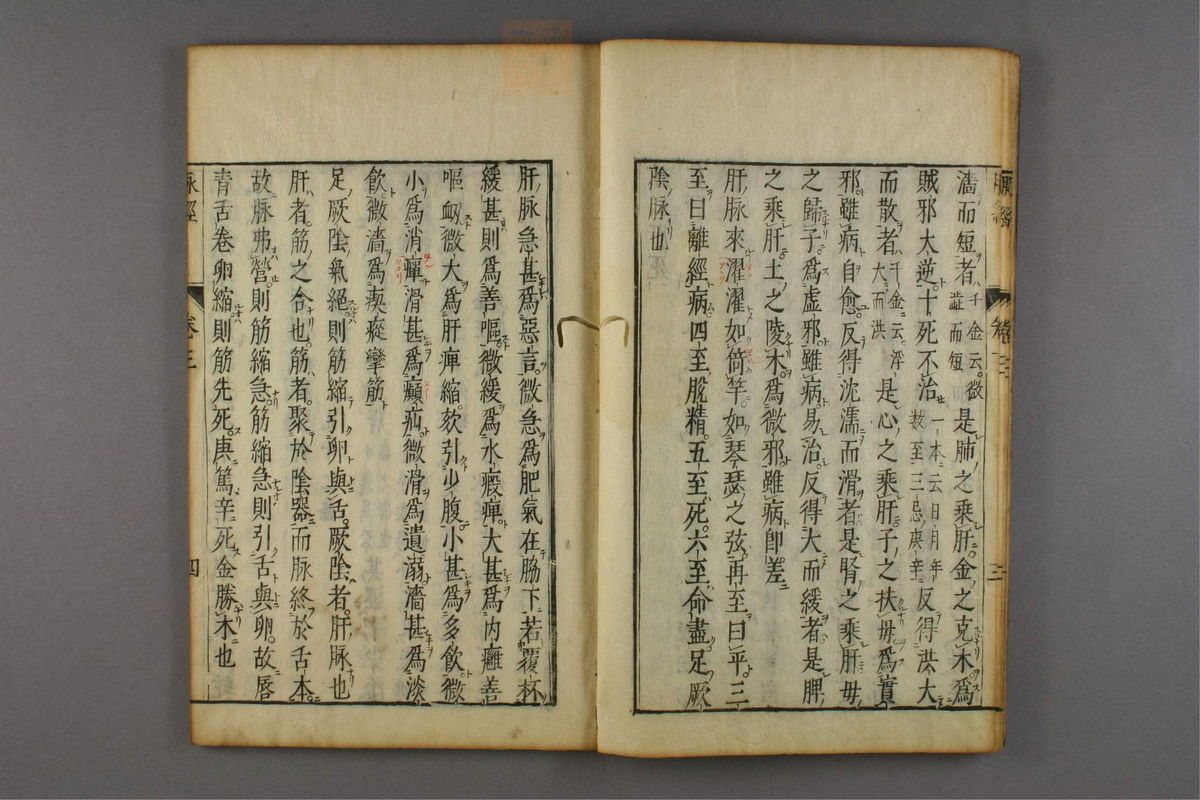 濇而短者千金云微濇而短是肺之乘肝金之克木爲
賊邪大逆十死不治一本云日月年數至三忌庚辛反得洪大
而散者千金云浮大而洪是心之乘肝子之扶母爲實
邪雖病自愈反得沈濡而滑者是腎之乘肝母
之歸子爲虛邪雖病易治反得大而緩者是脾
之乘肝土之陵木爲微邪雖病卽差
肝脉來濯濯如倚竿如琴瑟之弦再至曰平三
至曰離經病四至脫精五至死六至命盡足厥
陰脉也
肝脉急甚爲惡言微急爲肥氣在脇下若覆杯
緩甚則爲善嘔微緩爲水瘕痺大甚爲內癰善
嘔衂微大爲肝痺縮欬引少腹小甚爲多飮微
小爲消癉滑甚爲㿗疝微滑爲遺溺濇甚爲淡
飮微濇爲瘈瘲攣筋
足厥陰氣絕則筋縮引卵與舌厥陰者肝脉也
肝者筋之合也筋者聚於陰器而脉終於舌本
故脉弗營則筋縮急筋縮急則引舌與卵故唇
青舌卷卵縮則筋先死庚篤辛死金勝木也
脉經 卷三 四